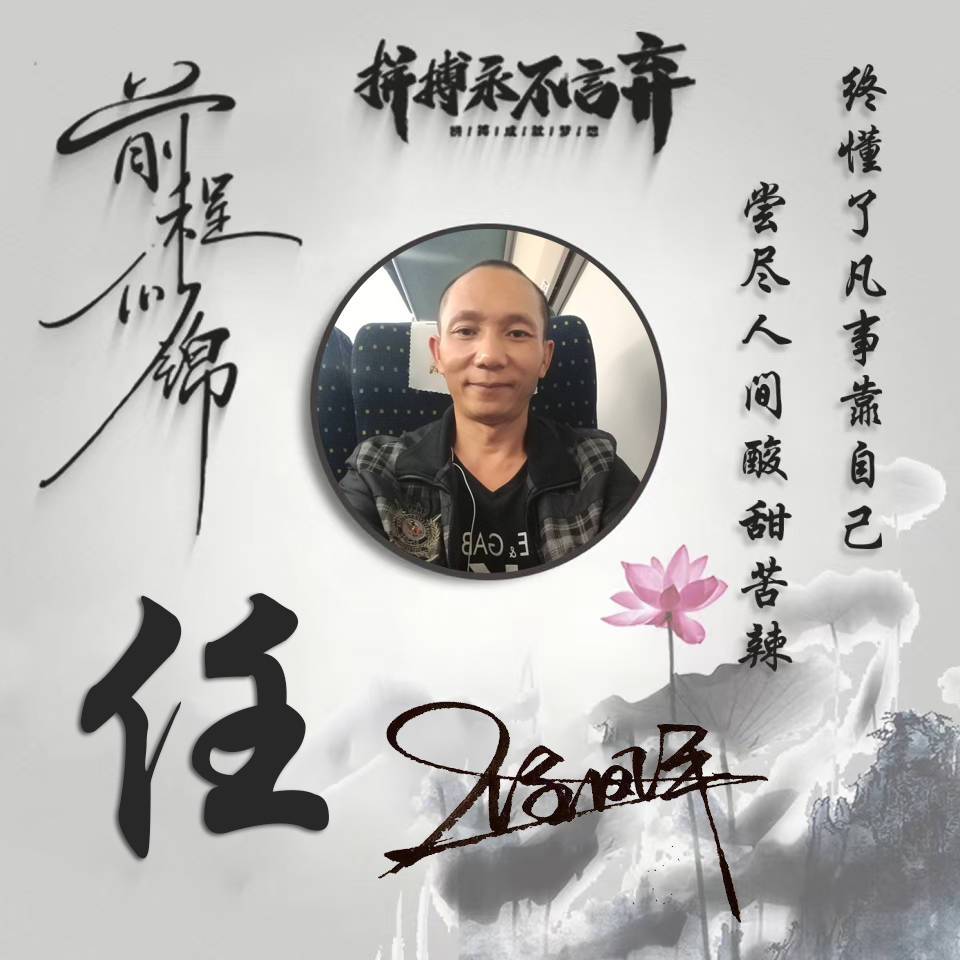 拼搏永不言弃
拼/搏/成/就/梦/想
前程似锦
终懂了凡事靠自己
尝尽人间酸甜苦辣
E & GAB
任